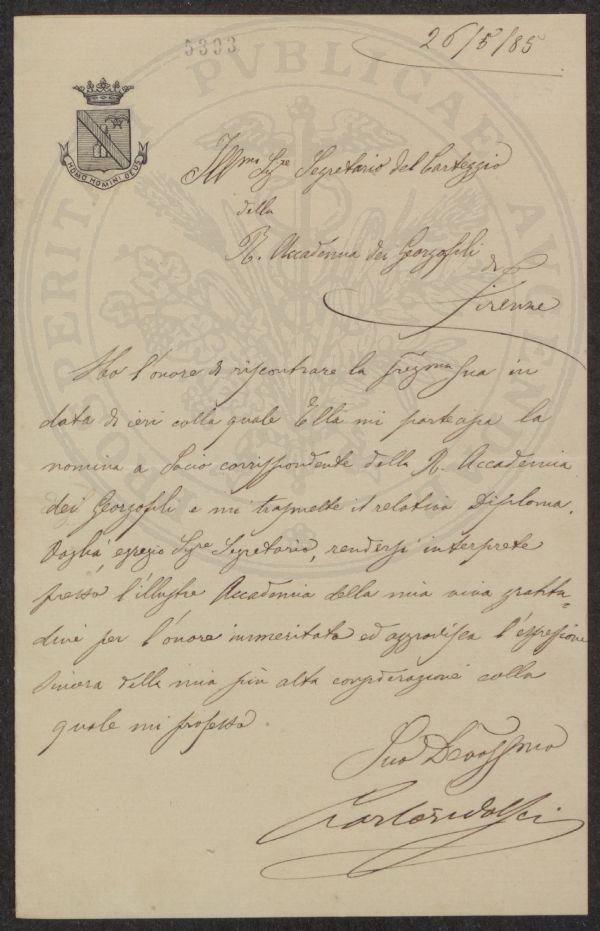 5393
26/5/85
HOMO HOMINI DEUS
PROSPERITATI PVBLICAE AVGENDAE
Ill.mo Sig.re Segretario del Carteggio
della
R. Accademia dei Georgofili
di
Firenze
Ho l'onore di riscontrare la preg.ma Sua in
data di ieri colla quale Ella mi partecipa la
nomina a Socio corrispondente della R. Accademia
dei Georgofili e mi trasmette il relativo Diploma.
Voglia, egregio Sig.re Segretario, rendersi interprete
presso l'illustre Accademia della mia viva gratitu-
dine per l'onore immeritato ed aggradisca l'espressione
sincera della mia più alta considerazione colla
quale mi professo
Suo Devotissimo
Carlo Ridolfi